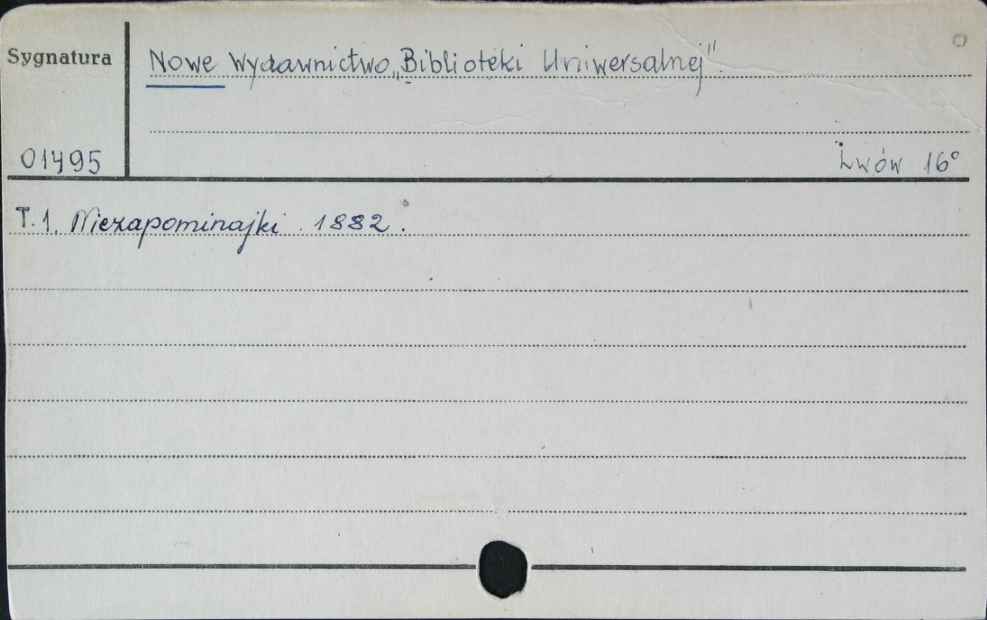 Sygnatura
Nowe Wydawnictwo „Biblioteki Uniwersalnej".
01495
Lwów 16°
T.1. Niezapominajki. 1882.